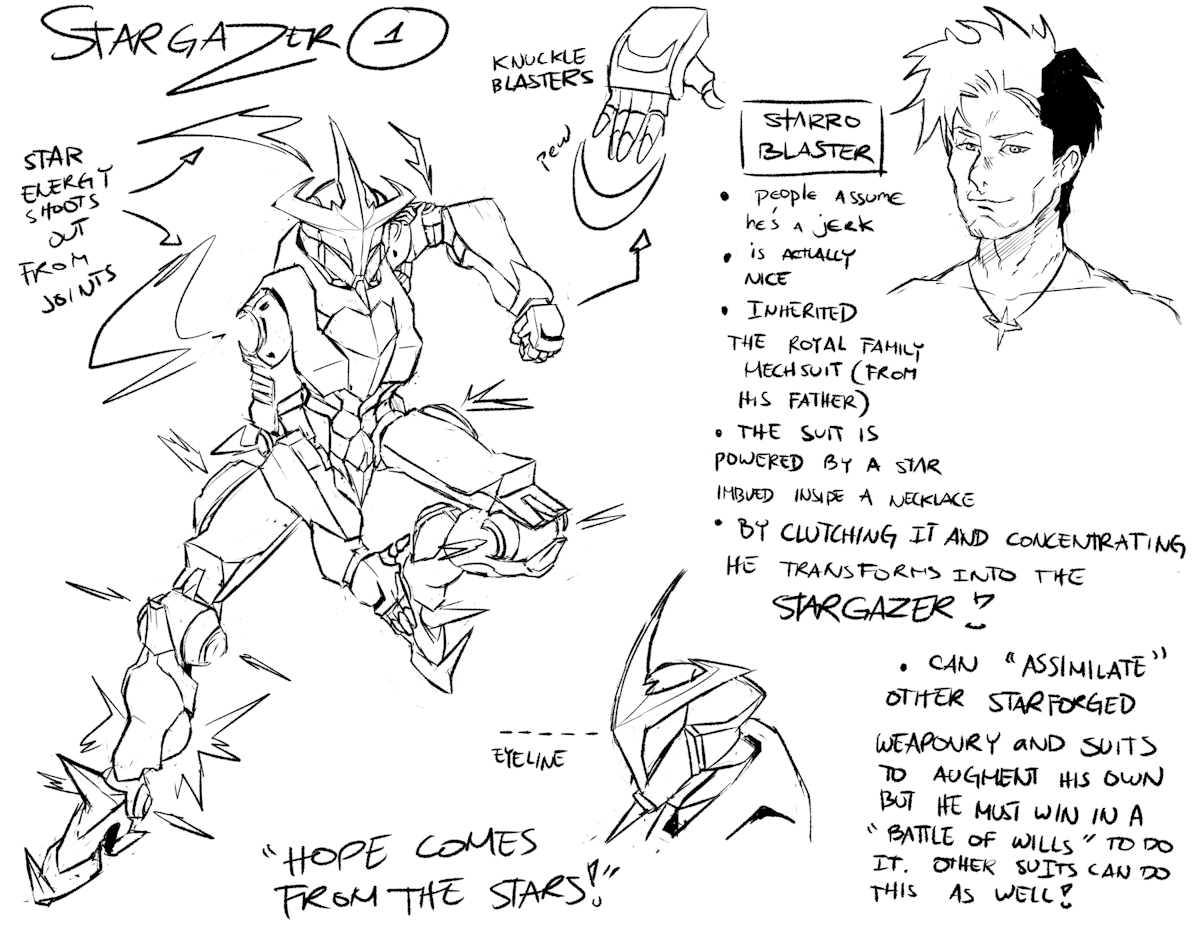 STARGAZER 1
STAR
ENERGY
SHOOTS
OUT
FROM
JOINTS
KNUCKLE
BLASTERS
PEW
STARRO
BLASTER
• PEOPLE ASSUME
HE'S A JERK
• IS ACTUALLY
NICE
• INHERITED
THE ROYAL FAMILY
MECHSUIT (FROM
HIS FATHER)
• THE SUIT IS
POWERED BY A STAR
IMBUED INSIDE A NECKLACE
• BY CLUTCHING IT AND CONCENTRATING
HE TRANSFORMS INTO THE
STARGAZER!
• CAN "ASSIMILATE"
OTHER STARFORGED
WEAPOURY AND SUITS
TO AUGMENT HIS OWN
BUT HE MUST WIN IN A
"BATTLE OF WILLS" TO DO
IT. OTHER SUITS CAN DO
THIS AS WELL!
EYELINE
"HOPE COMES
FROM THE STARS!"